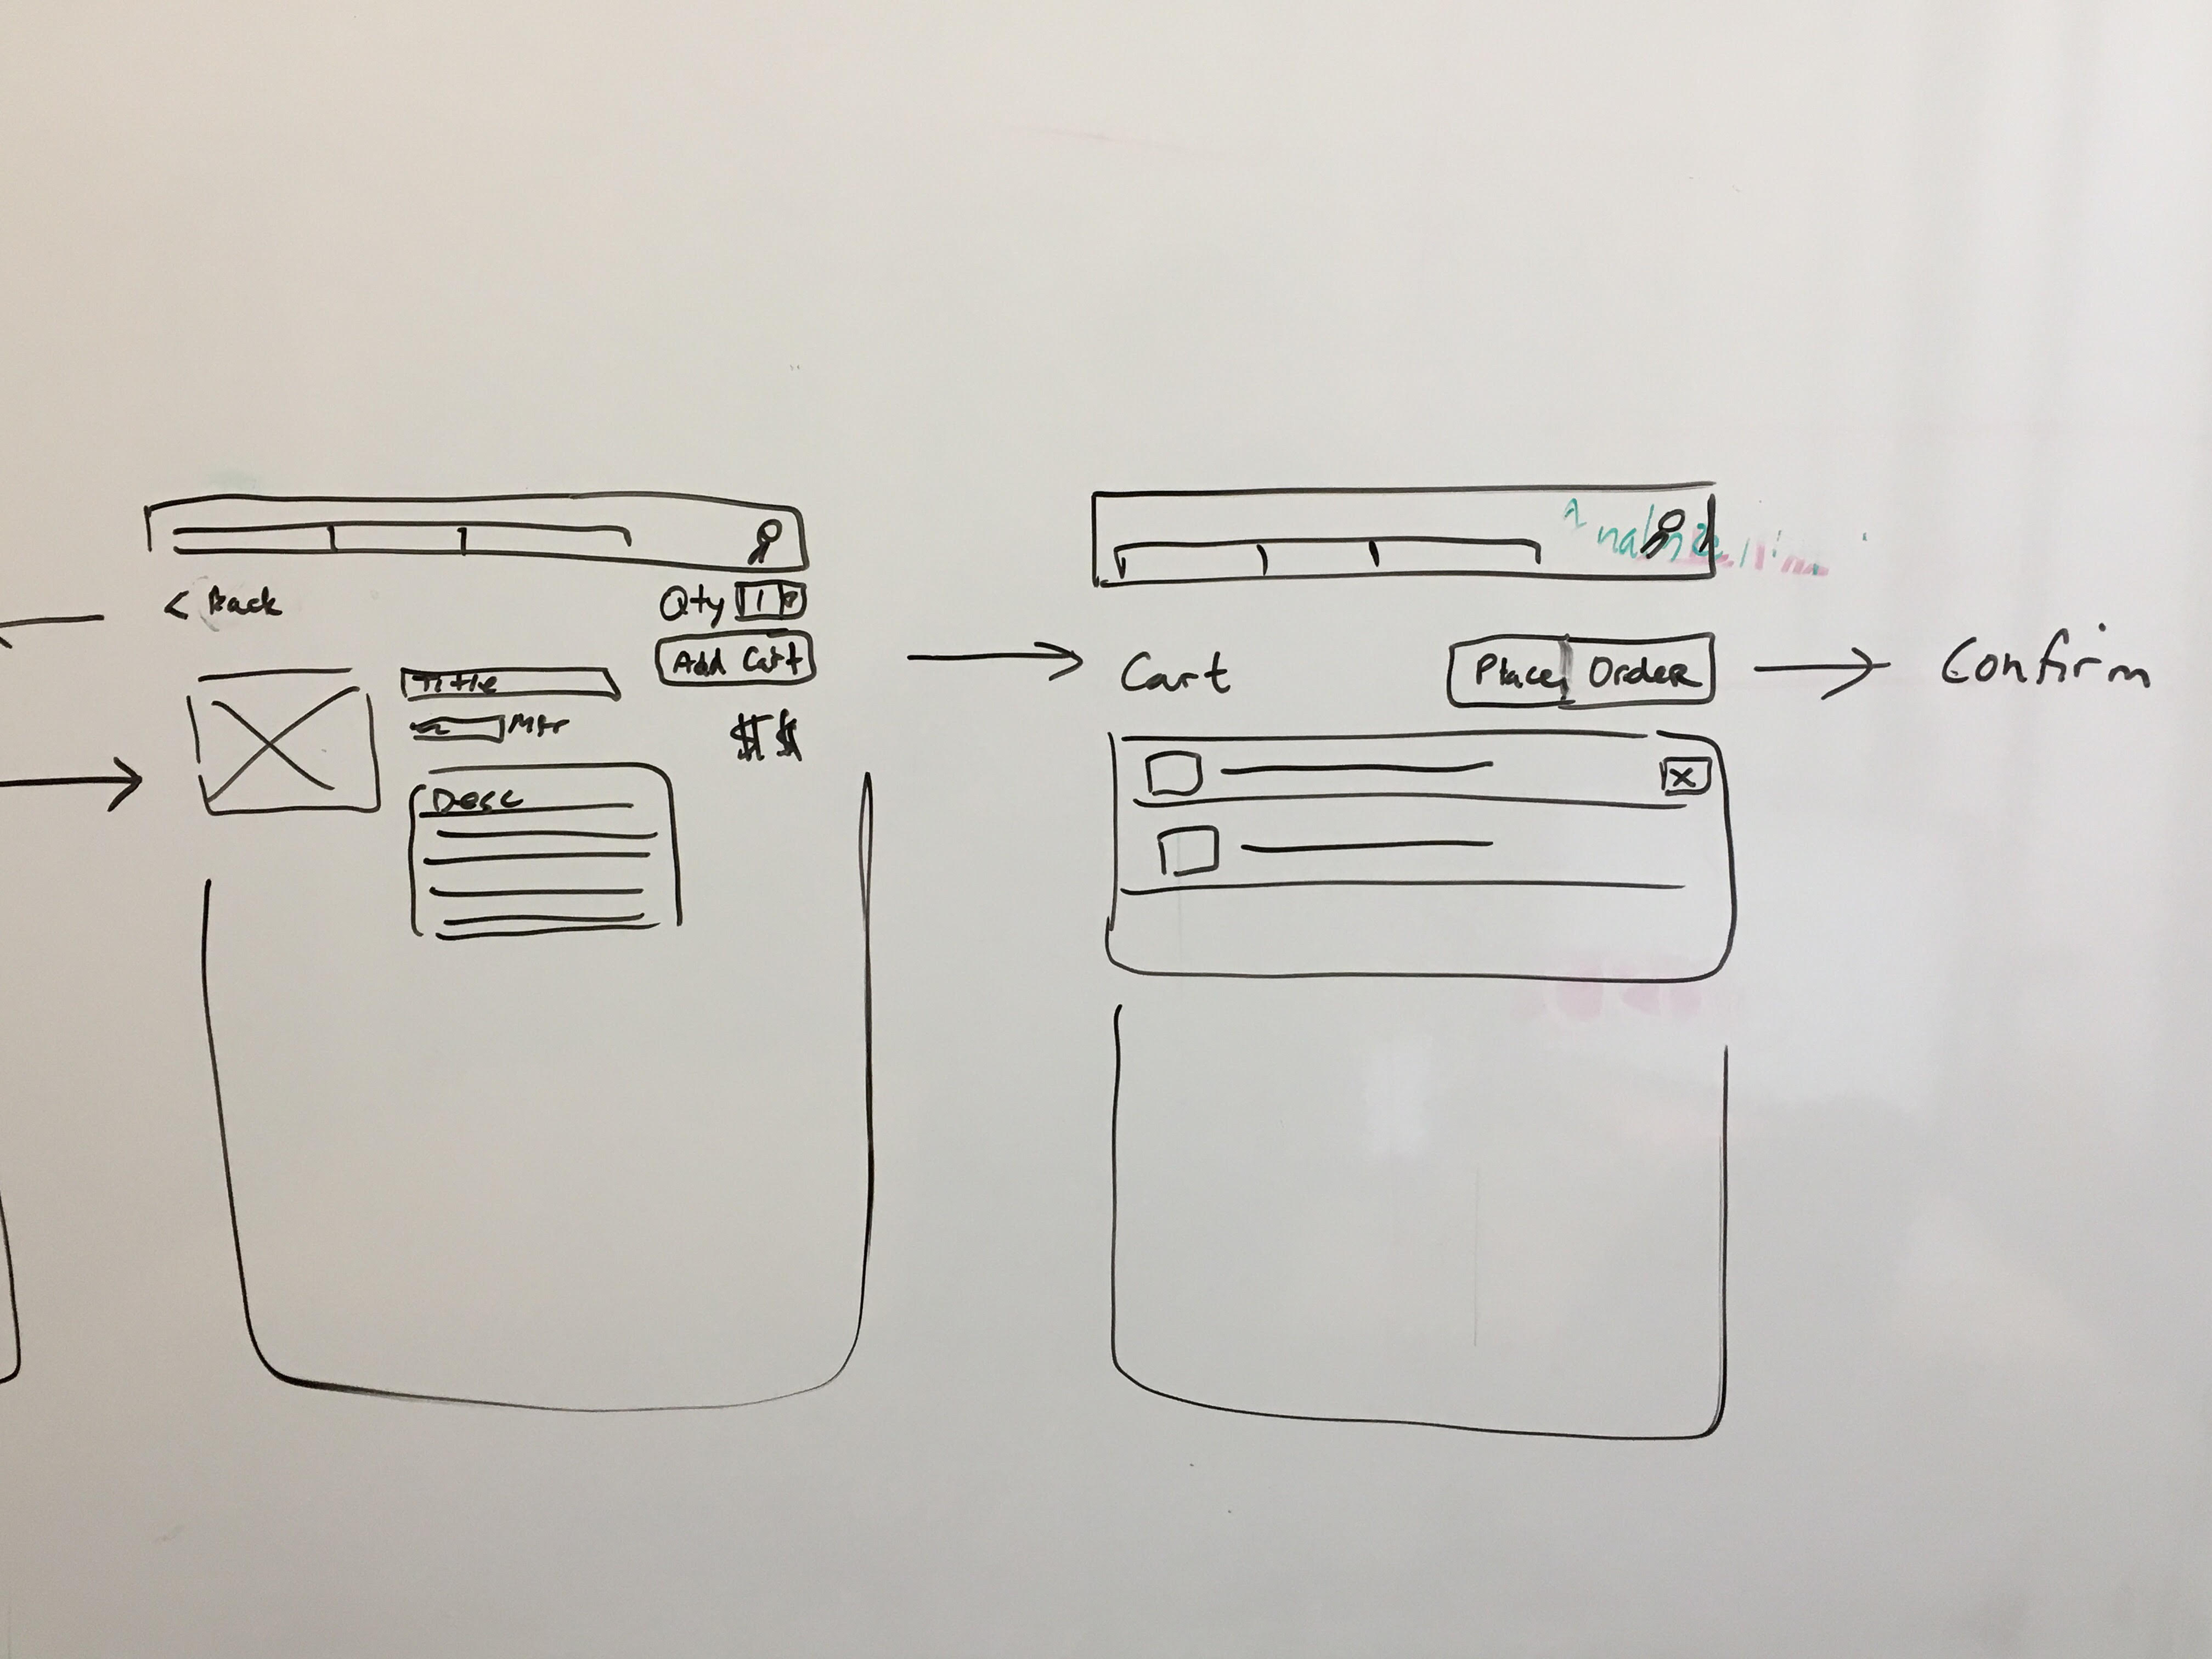 < Back
Qty 1
Add Cart
Title
Mfr
$$
Desc
Cart
Place Order
x
Confirm